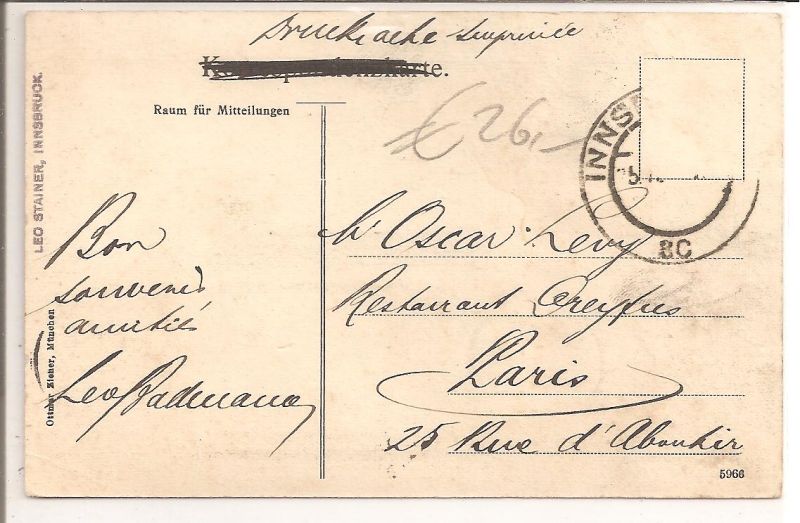 Drucksache Imprimée
Korrespondenzkarte.
Raum für Mitteilungen
€ 26,-
LEO STAINER, INNSBRUCK.
INNS
5
8C
Bon
souvenir
amitiés
Leo
Ottmar Zieher, München
Mr Oscar Levy
Restaurant Dreyfus
Paris
25 Rue d'Aboukir
5966